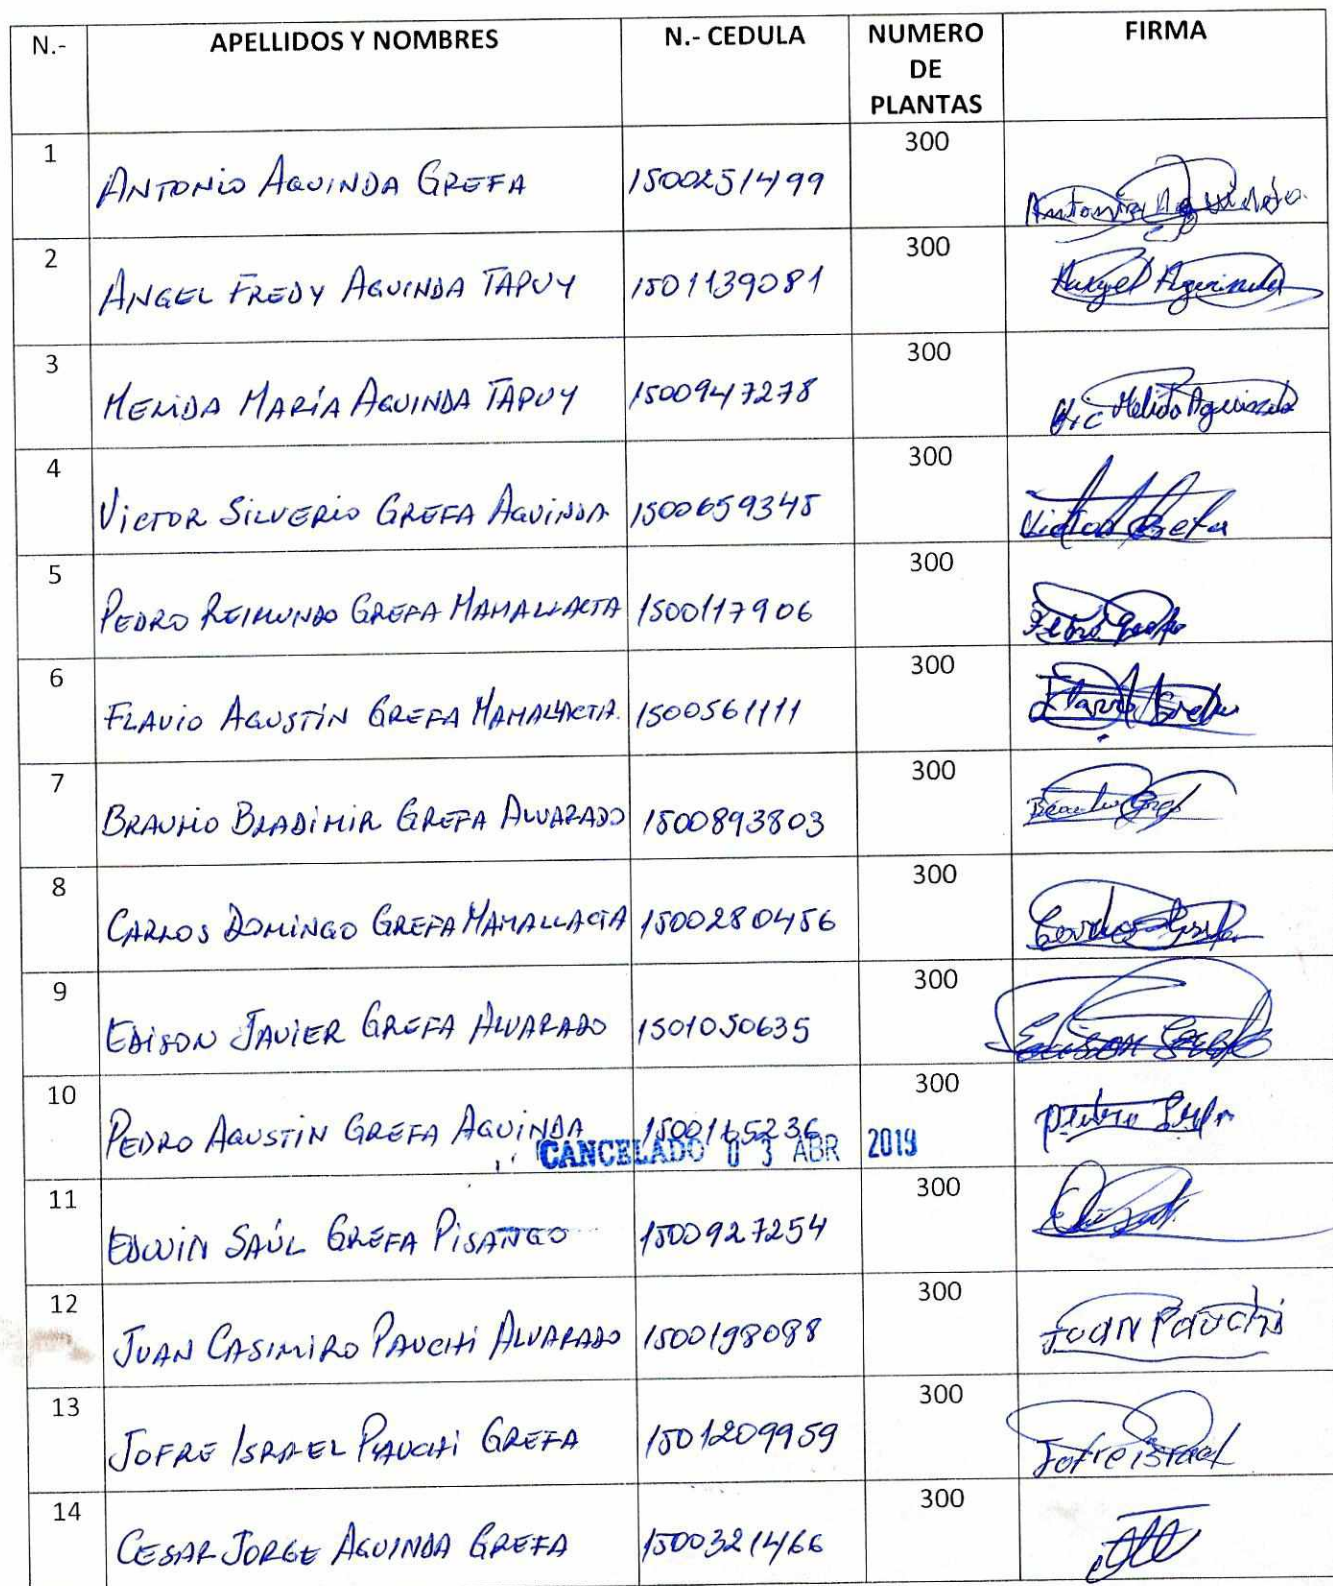 N.- APELLIDOS Y NOMBRES N.- CEDULA NUMERO DE PLANTAS FIRMA
1 ANTONIO AGUINDA GREFA 1500251499 300 Antonio Aguinda
2 ANGEL FREDY AGUINDA TAPUY 1501139081 300 Angel Aguinda
3 MELIDA MARÍA AGUINDA TAPUY 1500947278 300 Melida Aguinda
4 VICTOR SILVERIO GREFA AGUINDA 1500659345 300 Victor Grefa
5 PEDRO REIMUNDO GREFA MAMALLACTA 1500117906 300 Pedro Grefa
6 FLAVIO AGUSTÍN GREFA MAMALLACTA 1500561111 300 Flavio Grefa
7 BRAULIO BLADIMIR GREFA ALVARADO 1500893803 300 Braulio Gref
8 CARLOS DOMINGO GREFA MAMALLACTA 1500280456 300 Carlos Grefa
9 EDISON JAVIER GREFA ALVARADO 1501050635 300 Edison Grefa
10 PEDRO AGUSTIN GREFA AGUINDA 1500165236 300 Pedro Grefa
CANCELADO 03 ABR 2019
11 EDWIN SAÚL GREFA PISANGO 1500927254 300
12 JUAN CASIMIRO PAUCHI ALVARADO 1500198088 300 Juan Pauchi
13 JOFRE ISRAEL PAUCHI GREFA 1501209959 300 Jofre israel
14 CESAR JORGE AGUINDA GREFA 1500321466 300